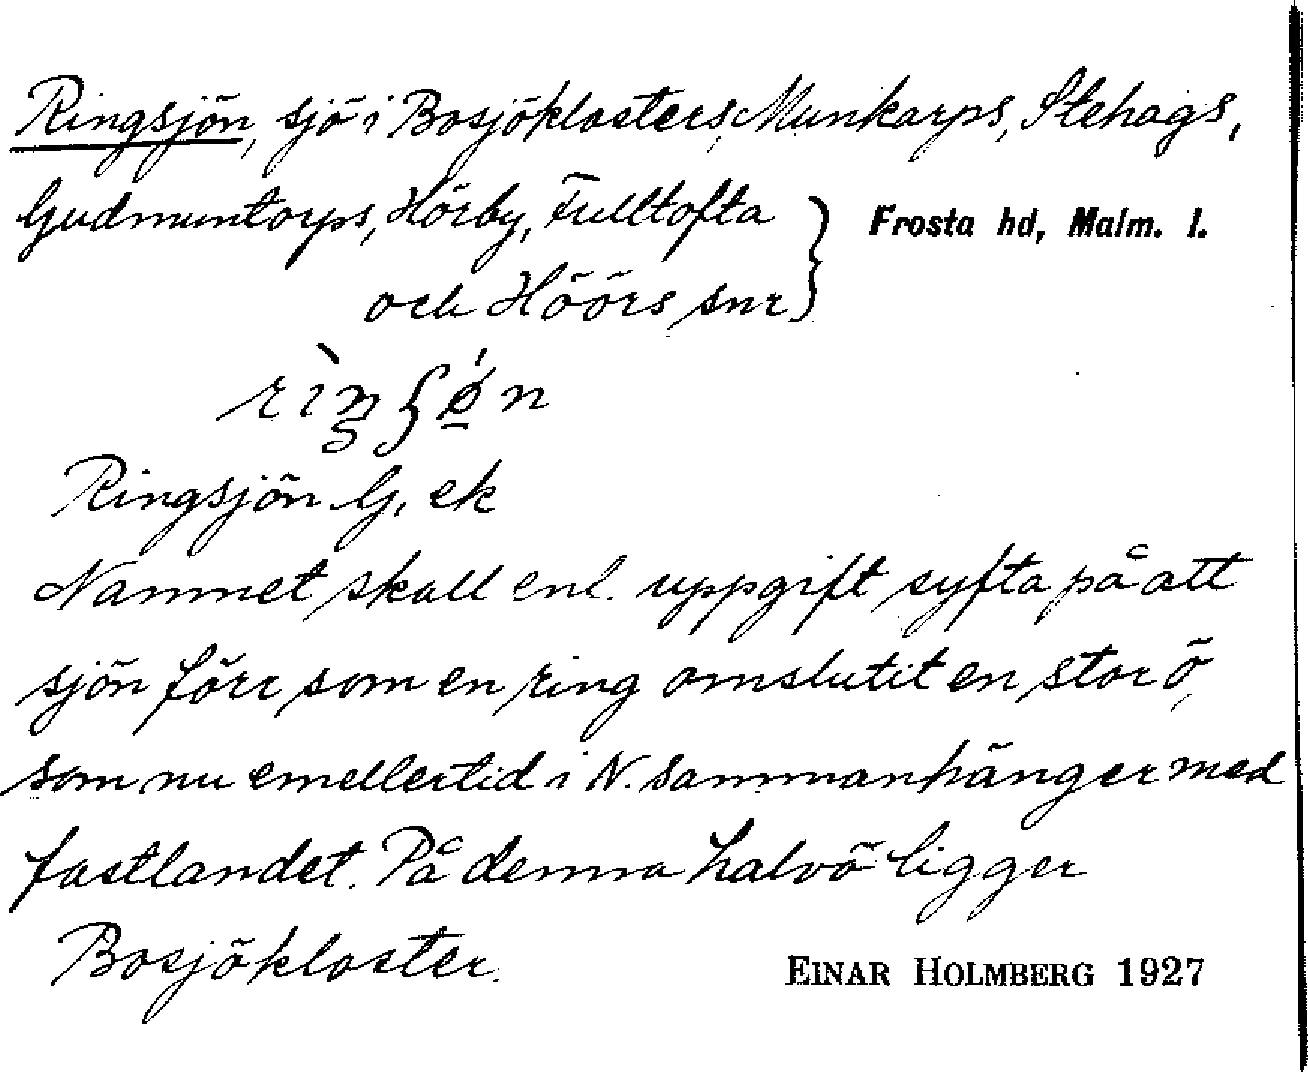 Ringsjön, sjö i Bosjöklosters, Munkarps, Stehags,
Gudmuntorps, Hörby, Fulltofta } Frosta hd, Malm. l.
och Höörs snr
Ringsjön G, ek
Namnet skall enl. uppgift syfta på att
sjön förr som en ring omslutit en stor ö,
som nu emellertid i N. sammanhänger med
fastlandet. På denna halvö ligger
Bosjökloster.
EINAR HOLMBERG 1927